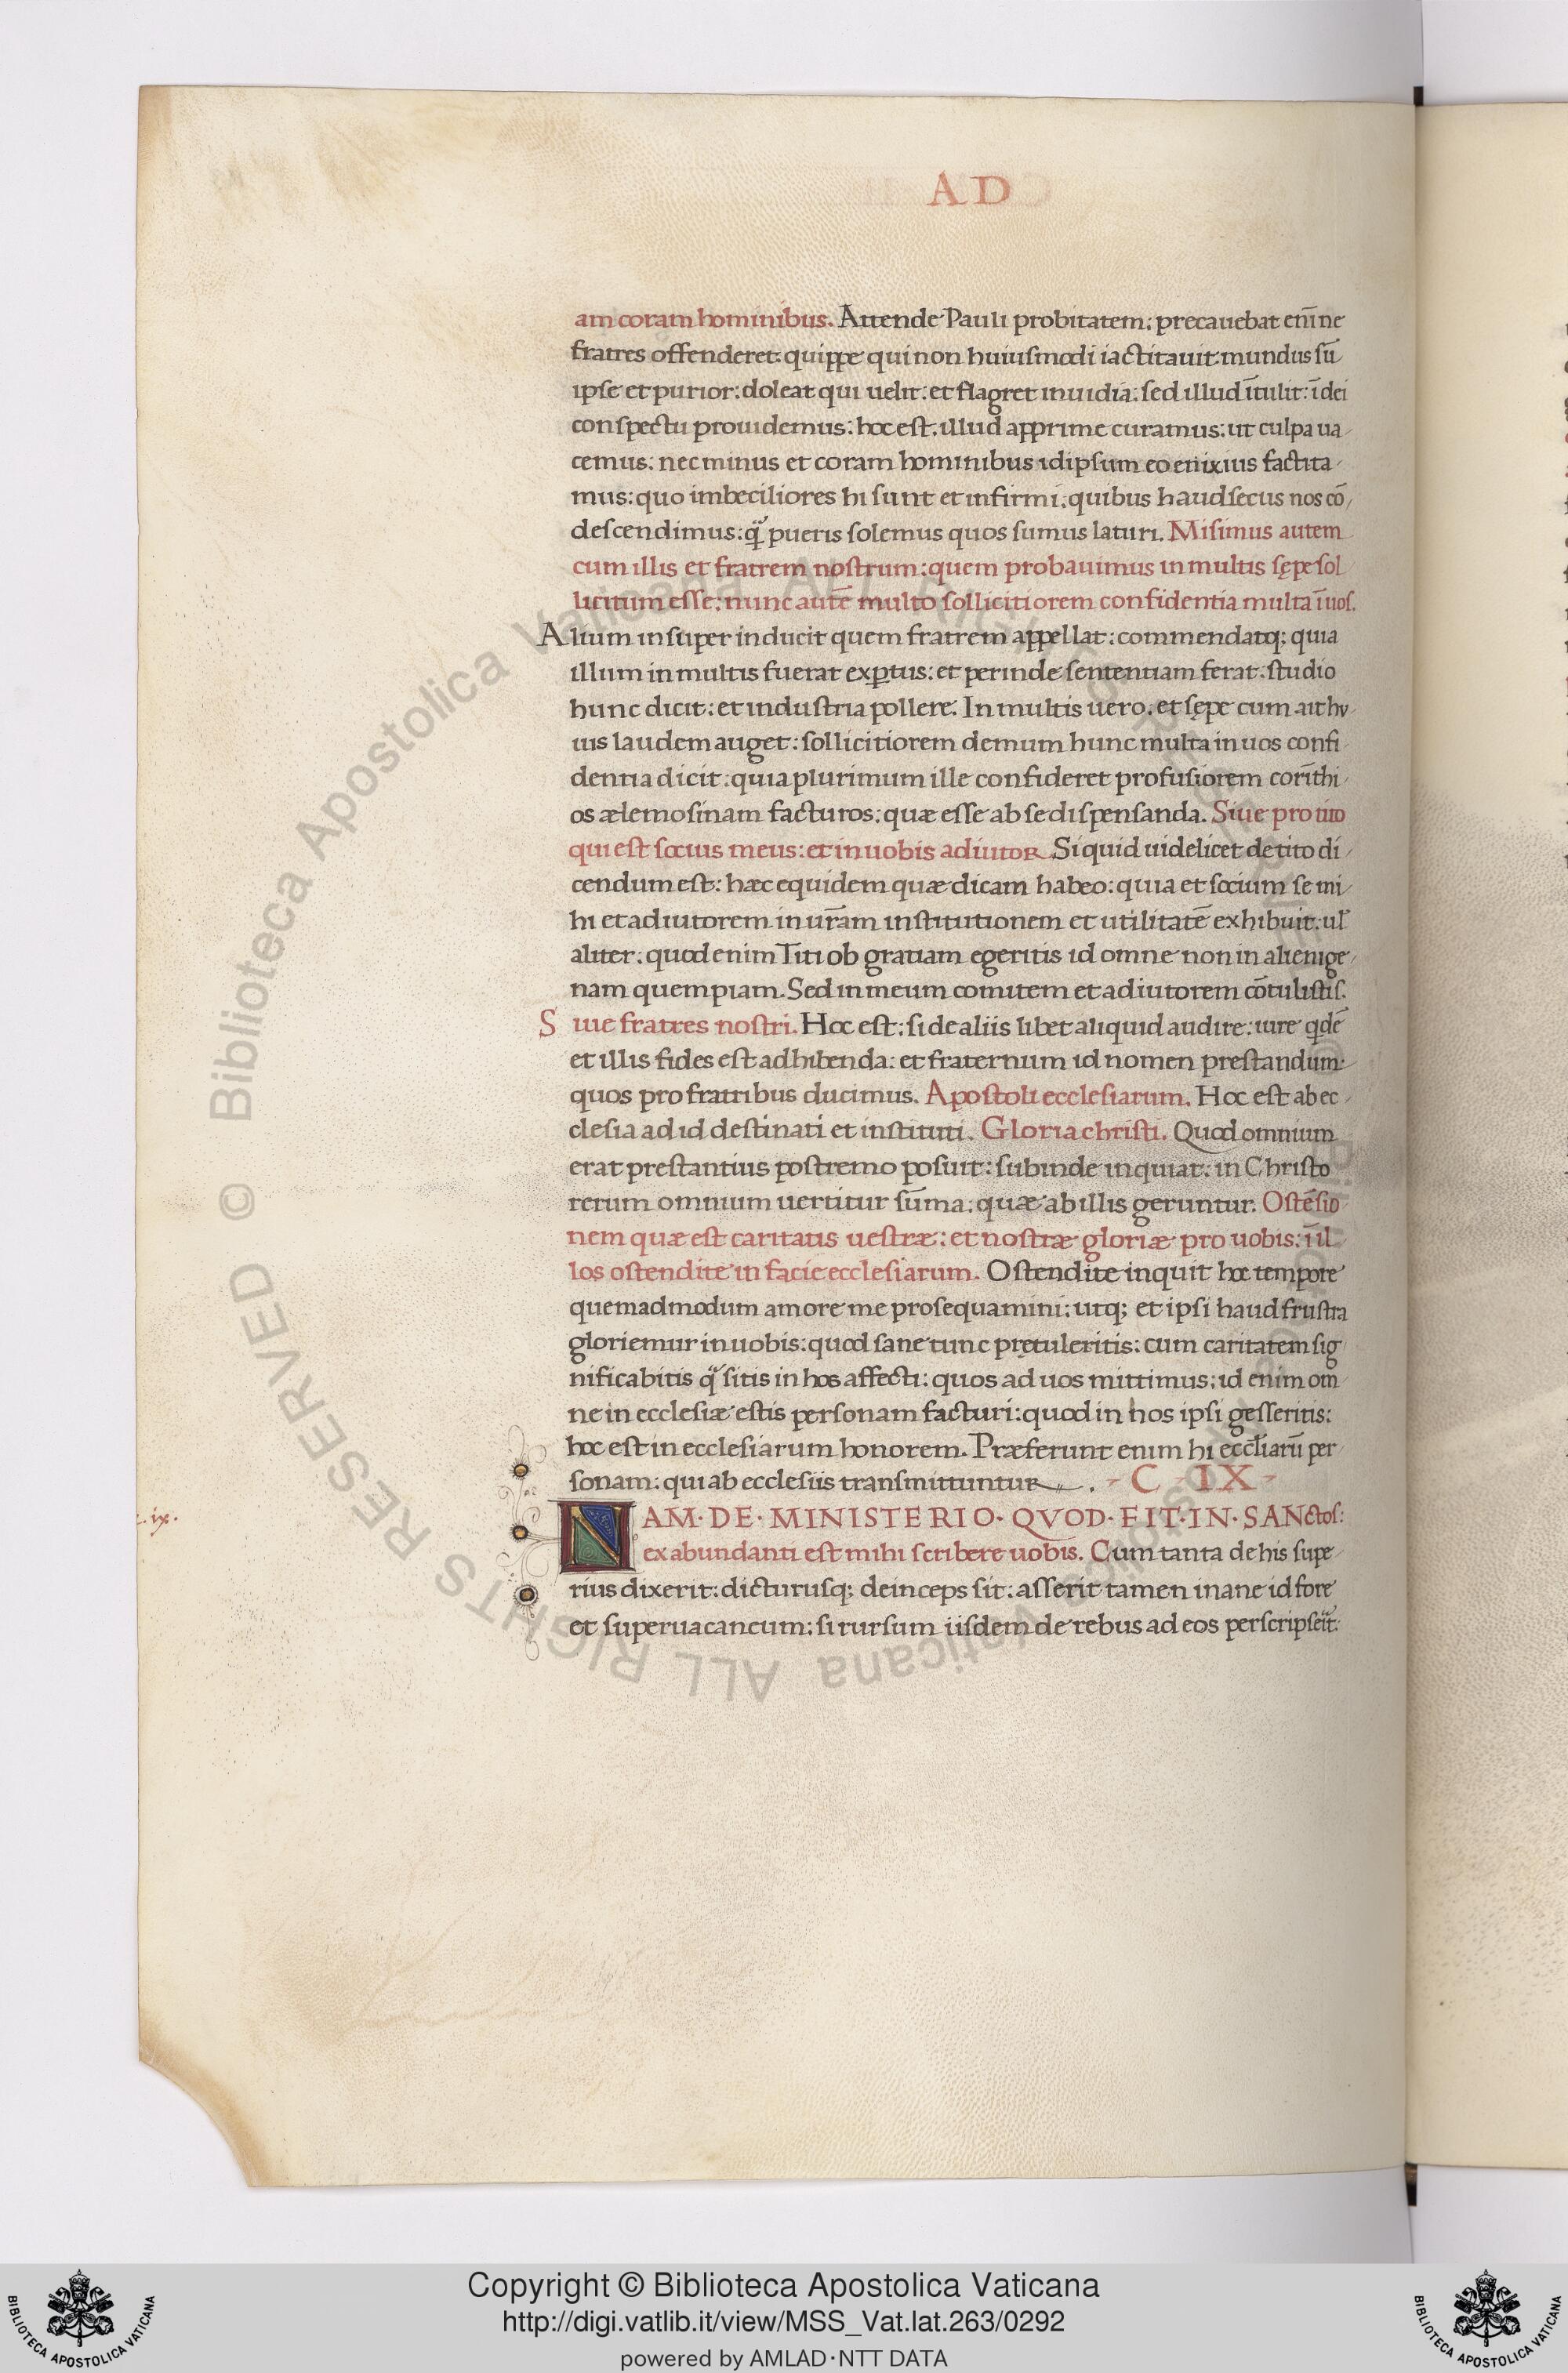 AD
am coram hominibus. Attende Pauli probitatem: precauebat eni̅ ne
fratres offenderet: quippe qui non huiusmodi iactitauit mundus su̅
ipse et purior: doleat qui uelit: et flagret inuidia: sed illud i̅tulit: i̅ dei
conspectu prouidemus: hoc est. illud apprime curamus: ut culpa ua-
cemus: nec minus et coram hominibus idipsum eo enixius factita-
mus: quo imbeciliores hi sunt et infirmi: quibus haud secus nos co̅-
descendimus: pueris solemus quos sumus laturi. Misimus autem
cum illis et fratrem nostrum: quem probauimus in multis sępe sol
licitum esse: nunc aute̅ multo sollicitiorem confidentia multa i̅ uos.
Alium insuper inducit quem fratrem appellat: commendatq; quia
illum in multis fuerat exꝑtus: et perinde sententiam ferat: studio
hunc dicit: et industria pollere. In multis uero. et sępe cum ait hu-
ius laudem auget: sollicitiorem demum hunc multa in uos confi-
dentia dicit: quia plurimum ille confideret profusiorem cori̅thi-
os ælemosinam facturos: quæ esse ab se dispensanda. Siue pro tito
qui est socius meus: et in uobis adiutor. Si quid uidelicet de tito di-
cendum est: hæc equidem quæ dicam habeo: quia et socium se mi-
hi et adiutorem in ur̅am institutionem et utilitate̅ exhibuit: ul̅
aliter: quod enim Titi ob gratiam egeritis id omne non in alienige-
nam quempiam. Sed in meum comitem et adiutorem co̅tulistis.
Siue fratres nostri. Hoc est: si de aliis libet aliquid audire: iure qde̅
et illis fides est adhibenda: et fraternum id nomen prestandum:
quos pro fratribus ducimus. Apostoli ecclesiarum. Hoc est ab ec-
clesia ad id destinati et instituti. Gloria christi. Quod omnium
erat prestantius postremo posuit: subinde inquiat: in Christo
rerum omnium uertitur su̅ma: quæ ab illis geruntur. Oste̅sio-
nem quæ est caritatis uestræ: et nostræ gloriæ pro uobis: i̅ il-
los ostendite in facie ecclesiarum. Ostendite inquit hoc tempore
quemadmodum amore me prosequamini: utq; et ipsi haud frustra
gloriemur in uobis: quod sane tunc prętuleritis: cum caritatem sig-
nificabitis sitis in hos affecti: quos ad uos mittimus: id enim om-
ne in ecclesiæ estis personam facturi: quod in hos ipsi gesseritis:
hoc est in ecclesiarum honorem. Præferunt enim hi eccl̅iaru̅ per-
sonam: qui ab ecclesiis transmittuntur. - C - IX -
c. ix.
NAM · DE · MINISTERIO · QVOD · FIT · IN · SANctos:
ex abundanti est mihi scribere uobis. Cum tanta de his supe-
rius dixerit: dicturusq; deinceps sit: asserit tamen inane id fore
et superuacaneum: si rursum iisdem de rebus ad eos perscripserit:
© Biblioteca Apostolica Vaticana ALL RIGHTS RESERVED
Copyright © Biblioteca Apostolica Vaticana
http://digi.vatlib.it/view/MSS_Vat.lat.263/0292
powered by AMLAD·NTT DATA
BIBLIOTECA APOSTOLICA VATICANA
BIBLIOTECA APOSTOLICA VATICANA